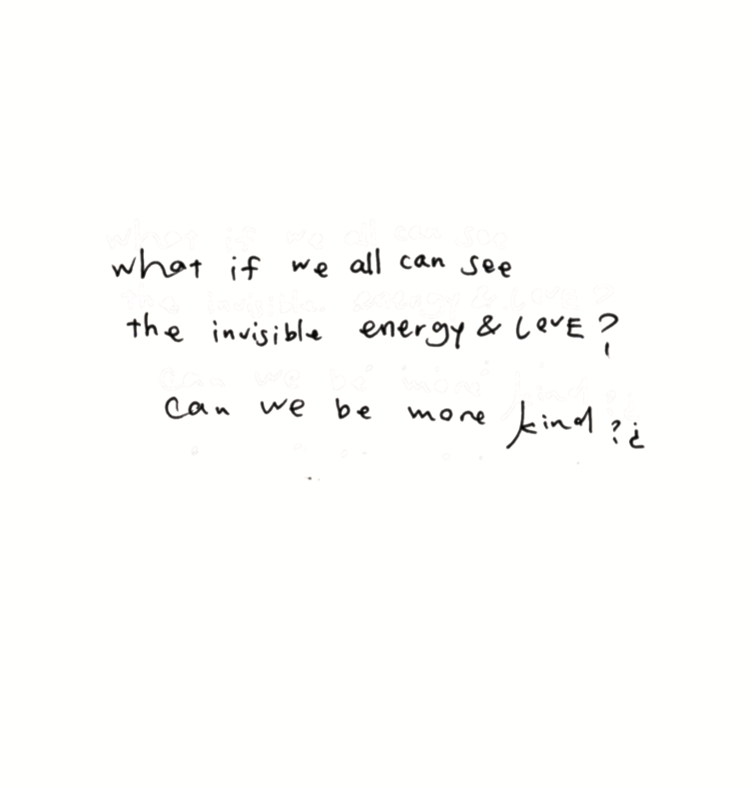 what if we all can see
the invisible energy & LOVE?
can we be more kind?¿